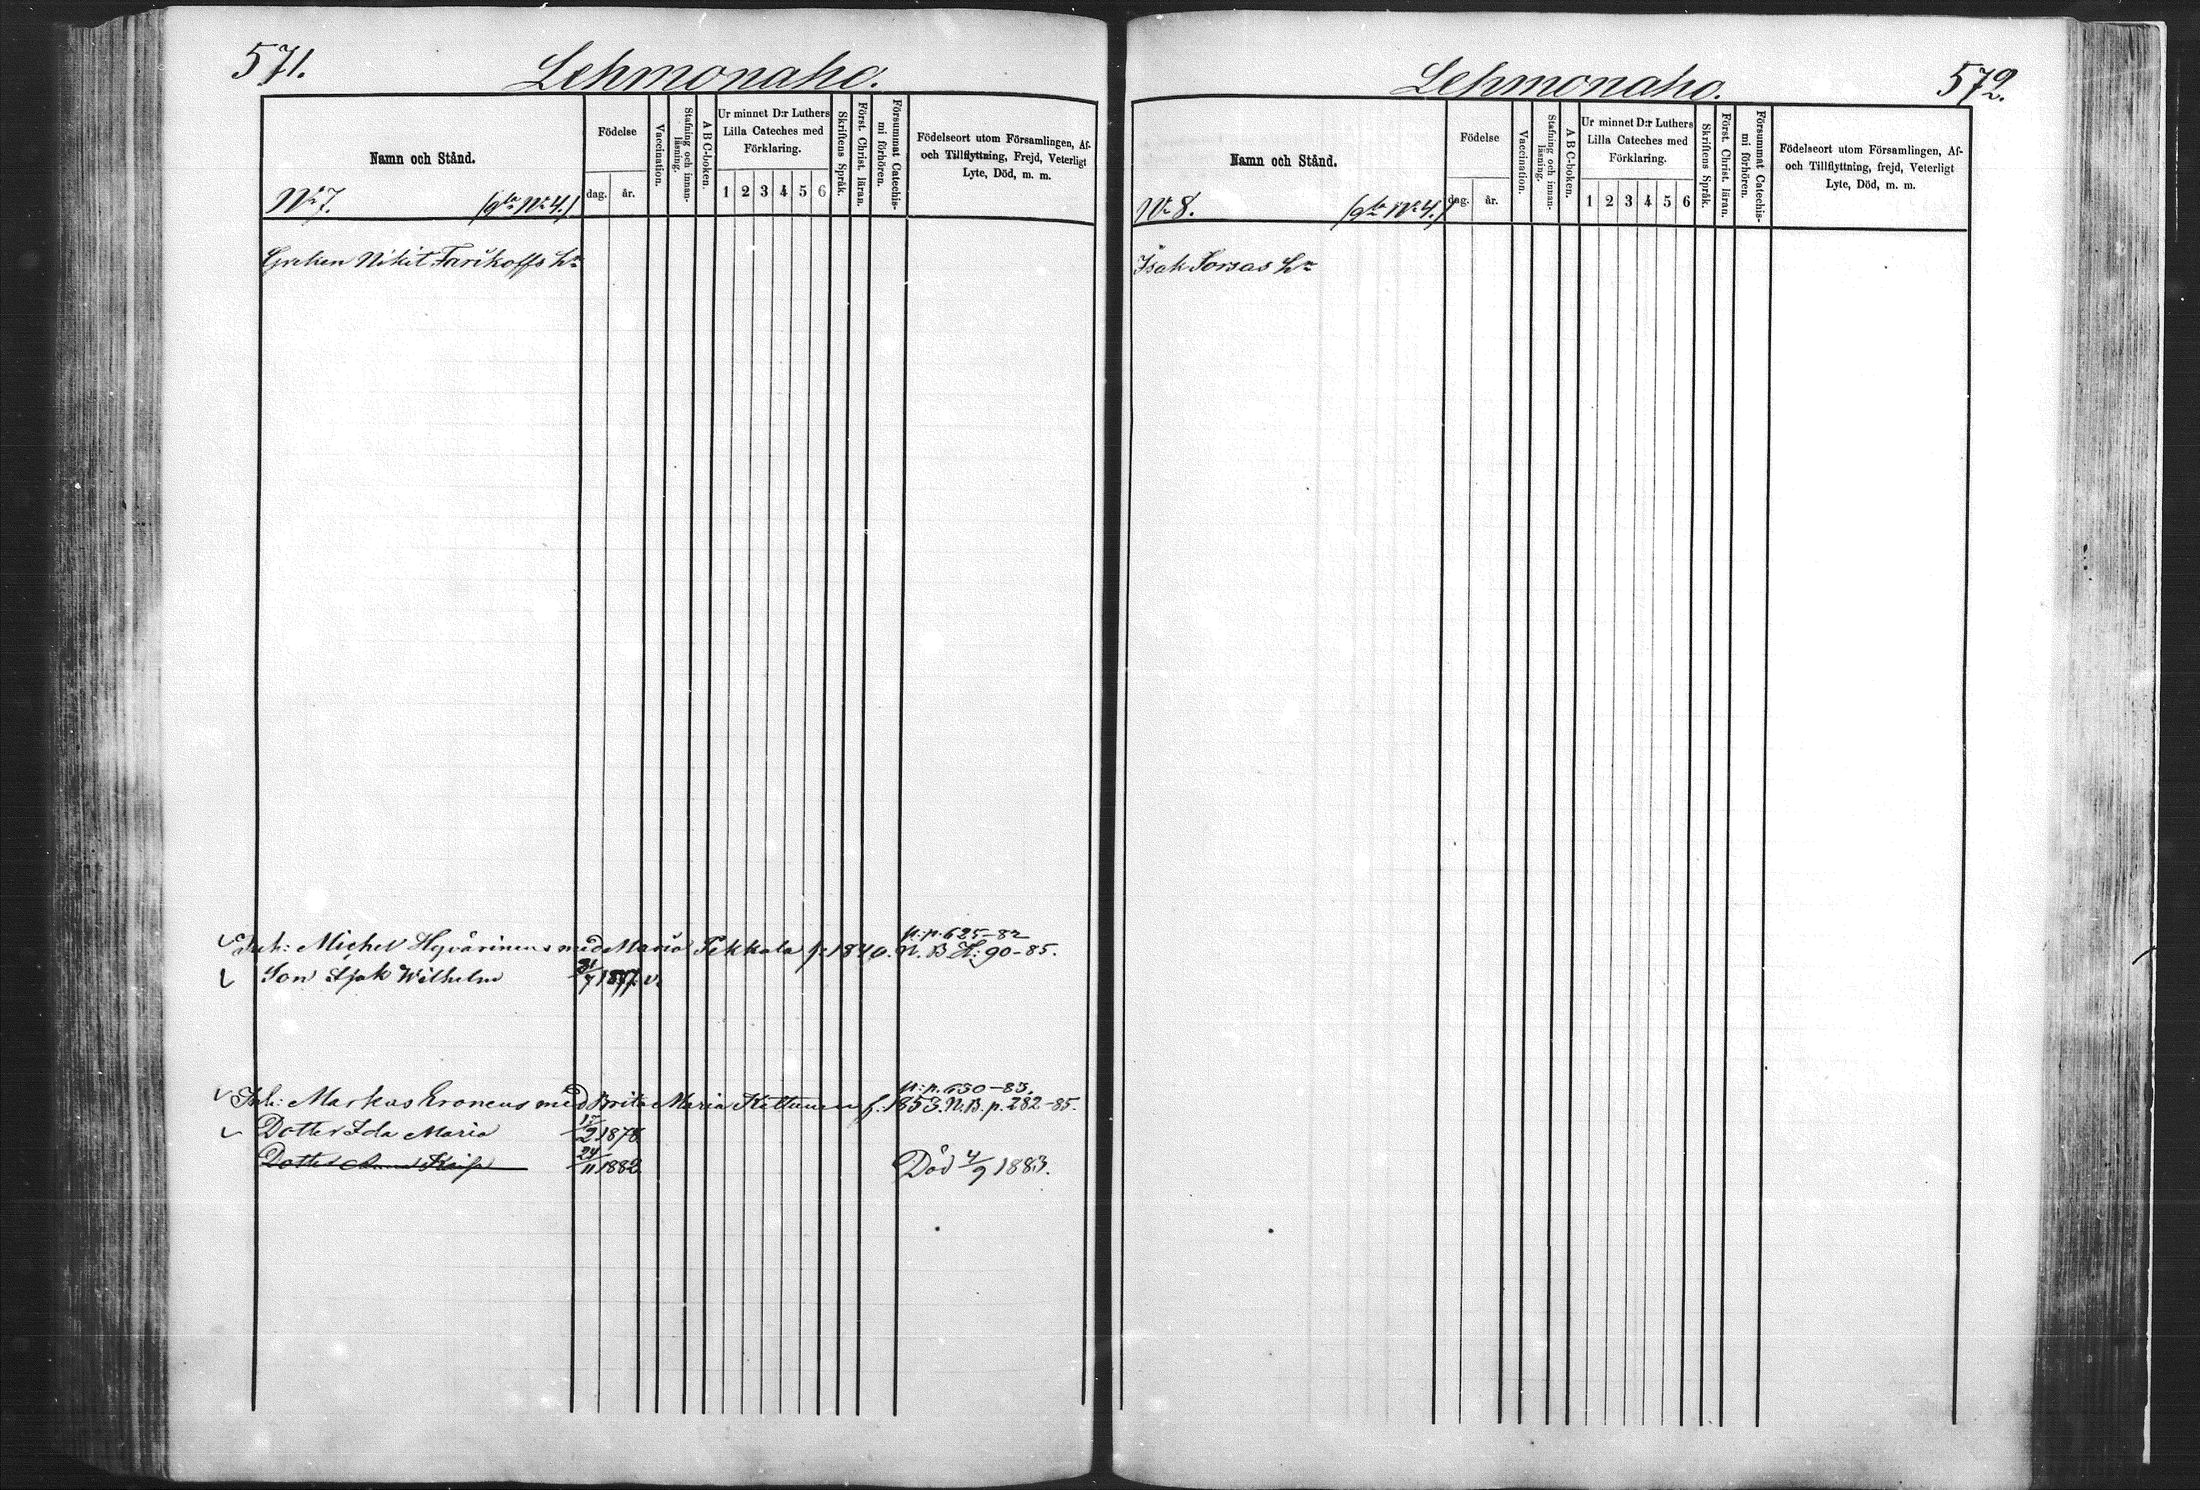 571.
Lehmonaho.
Namn och Stånd.
Födelse
dag. år.
Vaccination.
Stafning och innanläsning.
A B C-boken.
Ur minnet D:r Luthers Lilla Cateches med Förklaring.
1 2 3 4 5 6
Skriftens Språk.
Först. Christ. läran.
Försummat Catechismi förhören.
Födelseort utom Församlingen, Af- och Tillflyttning, Frejd, Veterligt Lyte, Död, m. m.
No 7. /gla No 4./
Greken Nikit Tarikoffs
n.p. 625-82
Inh: Michel Hyvärinens med Maria Pekkala f. 1840. N.B. H: 90-85.
Son Isak Wilhelm 31/7 1877. v.
n.p. 650-83.
Inh: Markus Eronens med Brita Maria Kettunen f. 1853. N.B. p. 282-85.
Dotter Ida Maria 17/2 1878
Dotter Anna Kaisa 24/11 1882 Död 4/9 1883.
572.
Lehmonaho.
Namn och Stånd.
Födelse
dag. år.
Vaccination.
Stafning och innanläsning.
A B C-boken.
Ur minnet D:r Luthers Lilla Cateches med Förklaring.
1 2 3 4 5 6
Skriftens Språk.
Först Christ. läran.
Försummat Catechismi förhören.
Födelseort utom Församlingen, Af- och Tillflyttning, frejd, Veterligt Lyte, Död, m. m.
No 8. /gla No 4./
Isak Sorsas